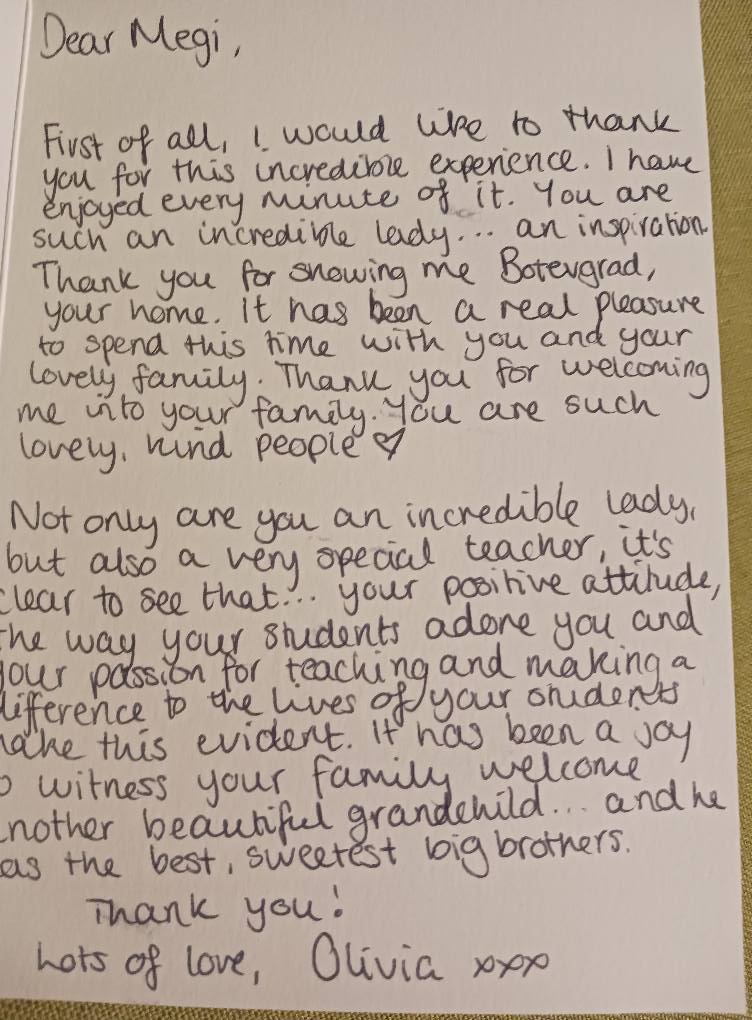 Dear Megi,
First of all, I would like to thank
you for this incredible experience. I have
enjoyed every minute of it. You are
such an incredible lady... an inspiration.
Thank you for showing me Botevgrad,
your home. It has been a real pleasure
to spend this time with you and your
lovely family. Thank you for welcoming
me into your family. You are such
lovely, kind people ♡
Not only are you an incredible lady,
but also a very special teacher, it's
clear to see that... your positive attitude,
the way your students adore you and
your passion for teaching and making a
difference to the lives of your students
make this evident. It has been a joy
to witness your family welcome
another beautiful grandchild... and he
has the best, sweetest big brothers.
Thank you!
Lots of love, Olivia xxx